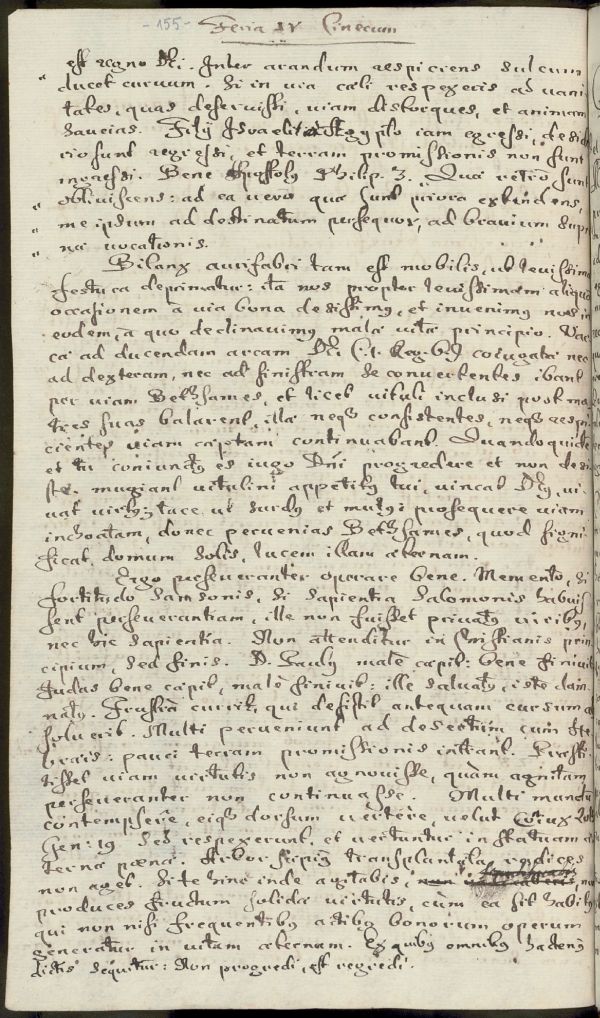 - 155 -
Feria IV Cinerum
est regno Dei. Inter arandum respiciens sulcum
" ducet curvum. Si in via caeli respexeris ad vani
tates, quas deseruisti, viam distorques, et animam
saucias. Filij Israelit. AEgypto iam egressi, deside
rio sunt regressi, et terram promissionis non sunt
ingressi. Bene Apostolus Philip. 3. Quae retro sunt
" obliviscens: ad ea vero quae sunt priora extendens,
" me ipsum ad destinatum persequor, ad bravium super
" nae vocationis.
Bilanx aurifabri tam est mobilis, ut levissima
festuca deprimatur: ita nos propter levissimam aliqua
occasionem a via bona desistimus, et invenimus nos in
eodem, a quo declinavimus malae vitae principio. Vac
cae ad ducendam arcam Dei (:1. Reg. 6:) coniugatae nec
ad dexteram, nec ad sinistram se convertentes ibant
per viam Bethsames, et licet vituli inclusi post ma
tres suas balarent, illae neque consistentes, neque respi
cientes viam captam continuabant. Quandoquide
et tu coniunctus es iugo Dni progredere et non desi
ste. mugiant vitulini appetitus tui, vincat Deus, vi
vat virtus; tace ut surdus et mutus: prosequere viam
inchoatam, donec pervenias Bethsames, quod signi
ficat domum solis, lucem illam aeternam.
Ergo perseveranter operare bene. Memento, si
fortitudo Samsonis, si sapientia Salomonis habuis
sent perseverantiam, ille non fuisset privatus viribus,
nec hic sapientia. Non attenditur in Christianis prin
cipium, sed finis. D. Paulus male caepit: bene finivit
Judas bene caepit, male finivit: ille salvatus, iste dam
natus. Frustra currit, qui desistit antequam cursum a
solverit. Multi perveniunt ad desertum cum He
braeis: pauci terram promissionis intrant. Praesti
tisset viam virtutis non agnovisse, quam agnitam
perseveranter non continuasse. Multi mundu
contempsere, eique dorsum vertere, velut uxor Lot
Gen: 19 sed respexerunt, et vertuntur in statuam ae
terna paena. Arbor saepius transplantata radices
non aget. Si te hinc inde agitabis, non
produces fructum solidae virtutis, cum ea sit habitus
qui non nisi frequentibus actibus bonorum operum
generatur in vitam aeternam. Ex quibus omnibus hactenus
dictis sequitur: Non progredi, est regredi.